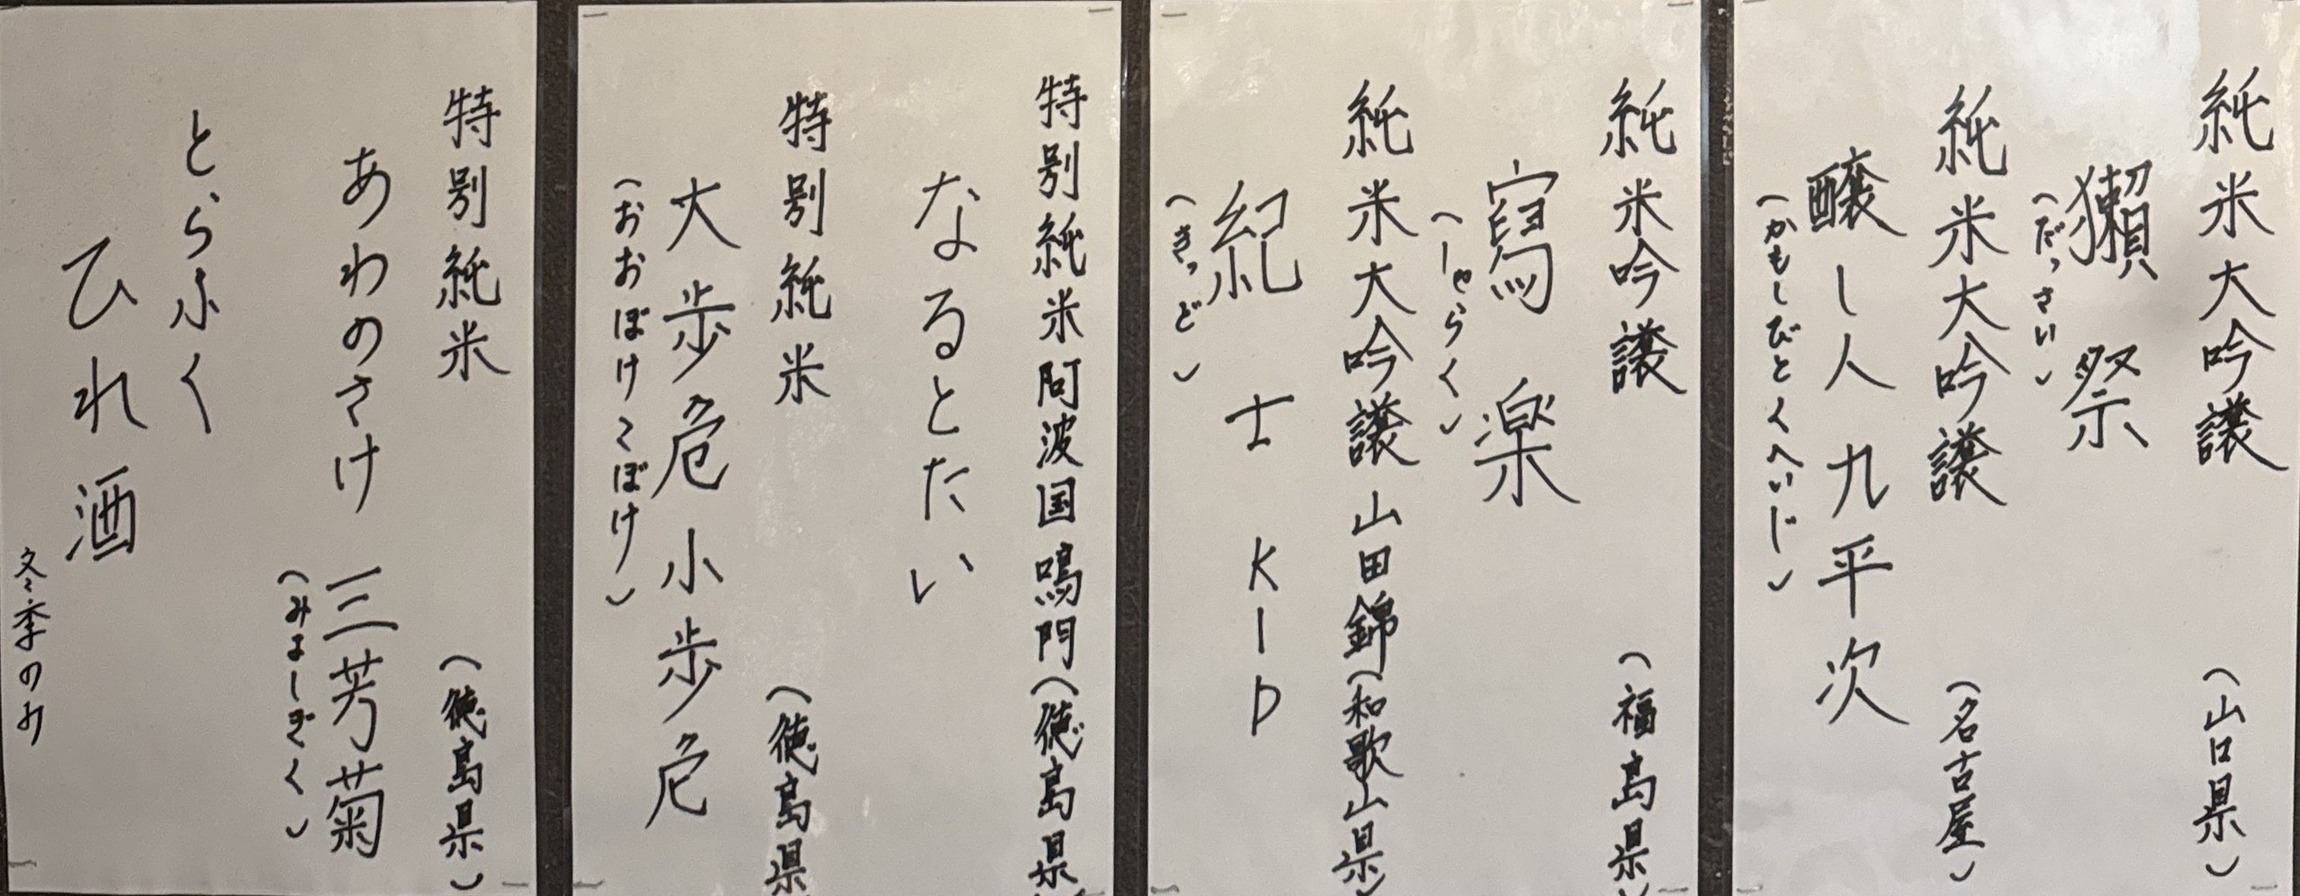 純米大吟譲 (山口県)
獺祭
(だっさい)
純米大吟譲 (名古屋)
醸し人九平次
(かもしびとくへいじ)
純米吟譲 (福島県)
寫楽
(しゃらく)
純米大吟譲山田錦(和歌山県)
紀士 KID
(きっど)
特別純米阿波国鳴門(徳島県
なるとたい
特別純米 (徳島県
大歩危小歩危
(おおぼけこぼけ)
特別純米 (徳島県)
あわのさけ 三芳菊
(みよしぎく)
とらふく
ひれ酒
冬季のみ